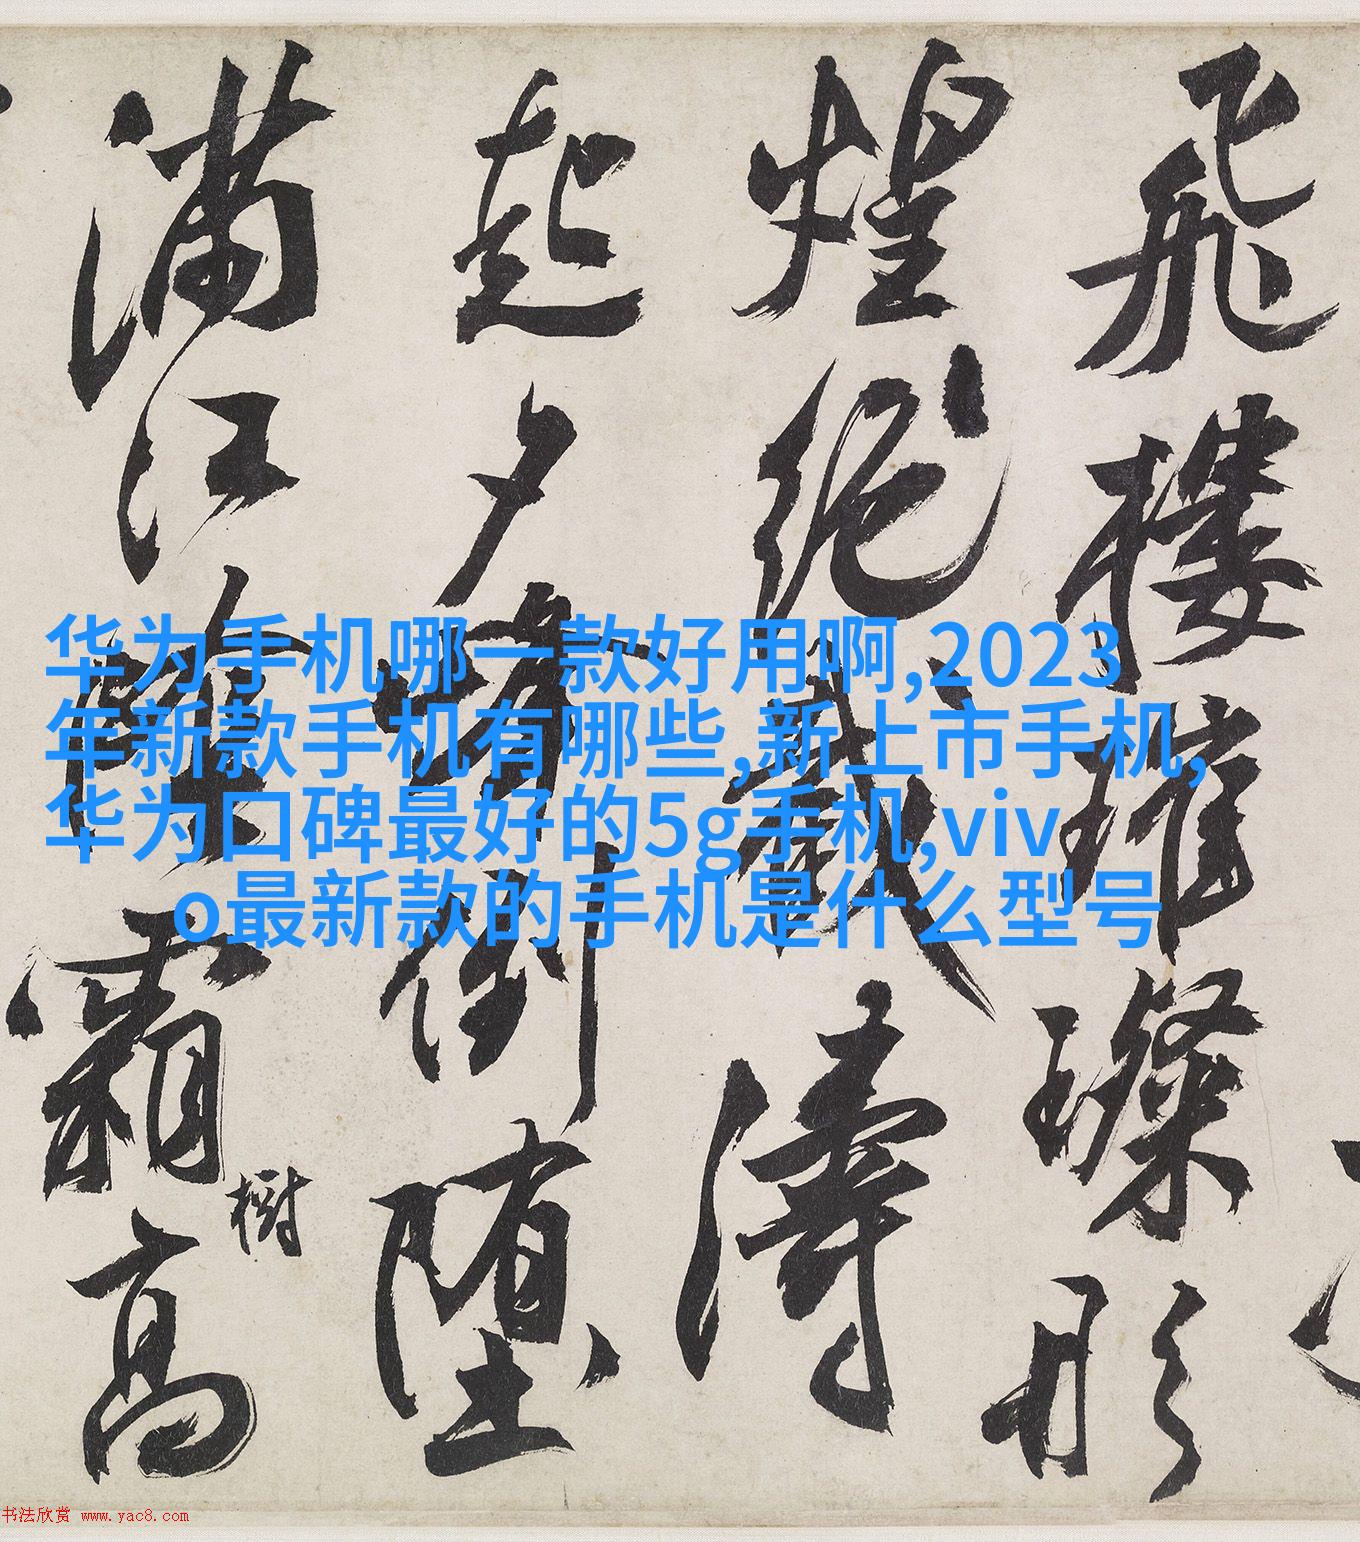 华为手机哪一款好用啊,2023
年新款手机有哪些,新上市手机,
华为口碑最好的5g手机,viv
o最新款的手机是什么型号
飛樓璀璨形
煌絕截濤
起夕倒堕
滿江陰霜高
樹
书法欣赏 www.yac8.com